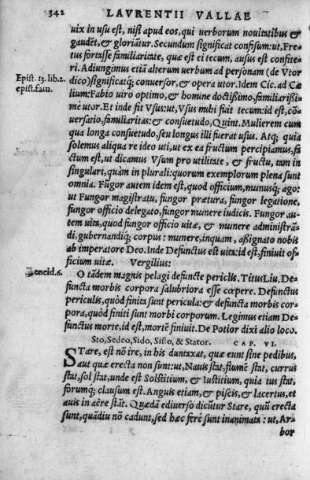 342 LAVRENTII VALLAE
uix in usu est, nisi apud eos, qui uerborum nouitatibus et
gaudẽt, & gloriãtur. Secundum significat consisum: ut, Fre
tus fortasse familiaritate, quæ est ei tecum, ausus est confite
ri. Adiungimus etiã alterum uerbum ad personam (de Vtor
Epist. 13. lib. 2. dico) significatq; conuersor, & opera utor. Idem Cic. ad Cæ
epist. fam. lium: Fabio uiro optimo, & homine doctissimo, familiarissi
me utor. Et inde fit Vsus: ut, Vsus mihi fuit tecum: id est, cõ-
uersatio, familiaritas: & consuetudo, Quint. Mulierem cum
qua longa consuetudo, seu longus illi fuerat usus. Atq; quia
solemus aliqua re ideo uti, ut ex ea fructum percipiamus, fa
ctum est, ut dicamus Vsum pro utilitate, & fructu, tam in
singulari, quàm in plurali: quorum exemplorum plena sunt
omnia. Fugor autem idem est, quod officium, munusq; ago:
ut Fungor magistratu, fungor prætura, fungor legatione,
fungor officio delegato, fungor munere iudicis. Fungor au-
tem uita, quod fungor officio uitæ, & munere administrã-
di, gubernandiq; corpus: munere, inquam, aßignato nobis
ab imperatore Deo. Inde Defunctus est uita: id est, finiuit of-
ficium uitæ. Vergilius:
Aeneid. 6. O tãdem magnis pelagi defuncte periclis. Titus Liu. De-
functa morbis corpora salubriora esse cœpere. Defunctus
periculis, quòd finita sunt pericula: & defuncta morbis cor-
pora, quòd finiti sunt morbi corporum. Legimus etiam De-
functus morte, id est, mortẽ finiuit. De Potior dixi alio loco.
Sto, Sedeo, Sido, Sisto, & Stator. CAP. VI.
STare, est nõ ire, in his duntaxat, quæ eunt sine pedibus,
aut quæ erecta non sunt: ut, Nauis stat, flumẽ stat, currus
stat, sol stat, unde est Solstitium, & Iustitium, quia ius stat,
forumq; clausum est. Anguis etiam, & piscis, & lacertus, et
auis in aëre stãt. Quædã ediuerso dicũtur Stare, quũ erecta
sunt, quãdiu nõ cadunt, sed hæc ferè sunt inanimata: ut, Ar-
bor